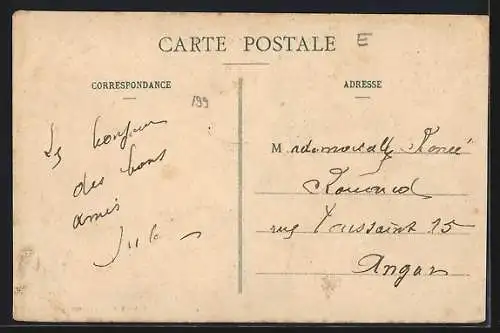 CARTE POSTALE
E
CORRESPONDANCE
ADRESSE
199
Le bonjour
des bons
amis
Jules
Mademoiselle Renée
rue Toussaint 25
Angers